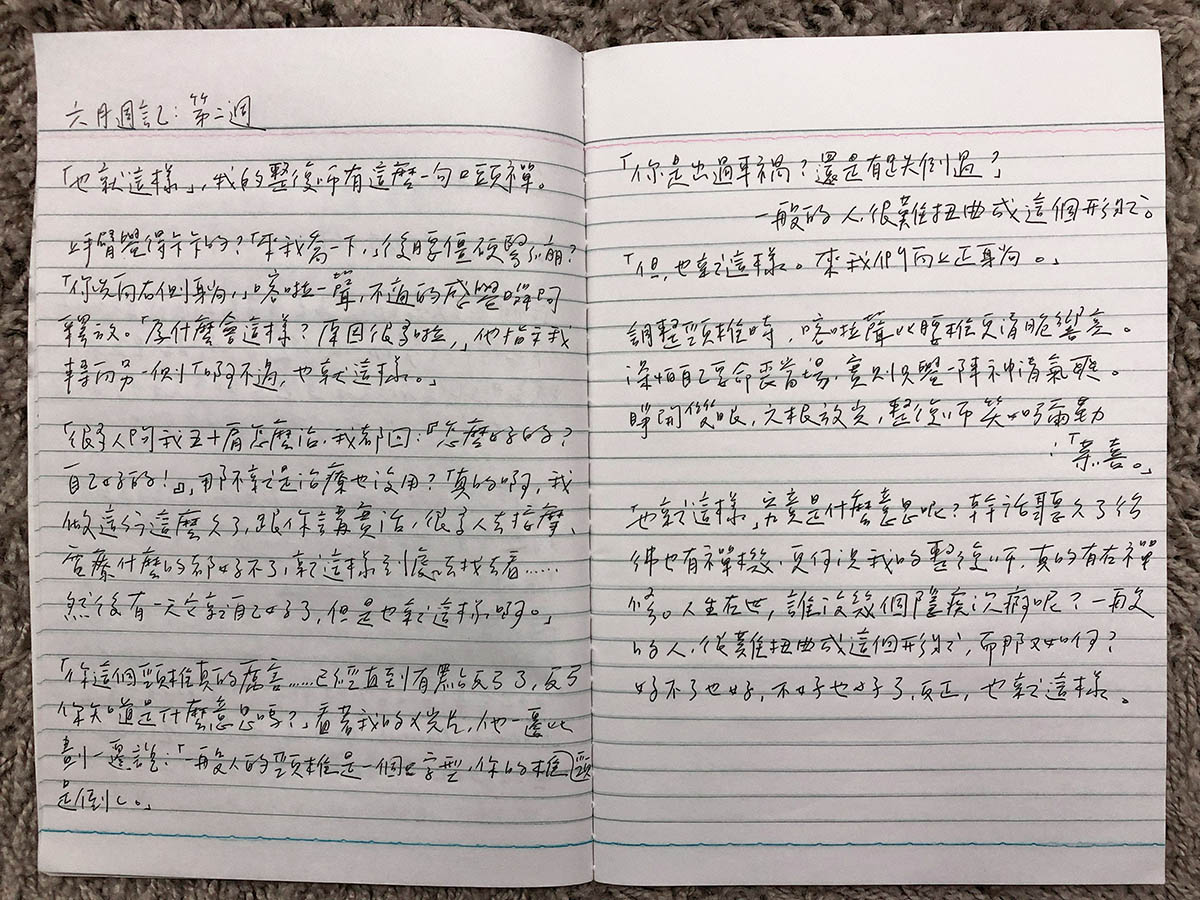 六月週記：第二週
「也就這樣」，我的整復師有這麼一句口頭禪。
手臂覺得卡卡的？「來我喬一下，」後腰僵硬緊繃？
「你先向右側身喲，」喀啦一聲，不適的感覺瞬間
釋放。「為什麼會這樣？原因很多啦，」他指示我
轉向另一側「啊不過，也就這樣。」
「很多人問我五十肩怎麼治，我都回：『怎麼好的？
自己好的！』，那不就是治療也沒用？「真的啊，我
做這行這麼久了，跟你講實話，很多人去按摩、
電療什麼的都好不了，就這樣到處去找去看……
然後有一天它就自己好了，但是也就這樣啊。」
「你這個頸椎真的厲害……已經直到有點反了，反了
你知道是什麼意思嗎？」看著我的X光片，他一邊比
劃一邊說：「一般人的頸椎是一個C字型，你的椎頸
是倒C。」
「你是出過車禍？還是有跌倒過？
一般的人，很難扭曲成這個形狀。
「但，也就這樣。來我們向上正身喲。」
調整頸椎時，喀啦聲比腰椎更清脆響亮。
深怕自己要命喪當場，實則只覺一陣神清氣爽。
睜開雙眼，六根放空，整復師笑如彌勒
：「恭喜。」
「也就這樣」究竟是什麼意思呢？幹話聽久了彷
彿也有禪機，更何況我的整復師，真的有在禪
修。人生在世，誰沒幾個隱疾沉痾呢？一般
的人，很難扭曲成這個形狀，而那又如何？
好不了也好，不好也好了，反正，也就這樣。